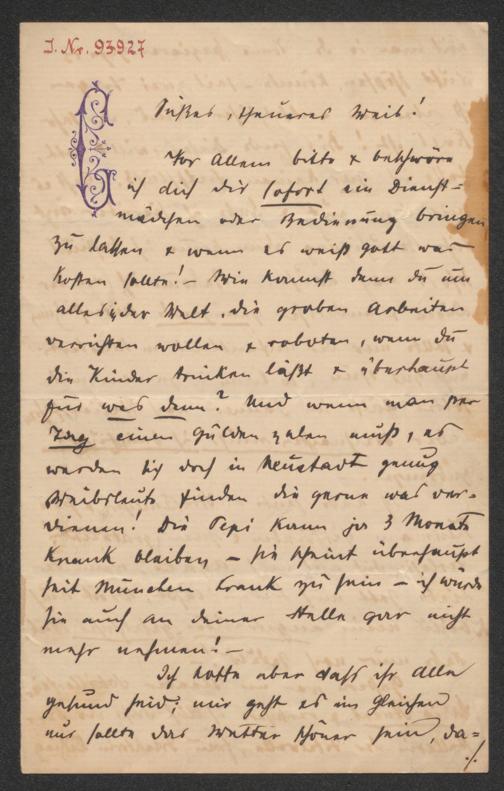 I. Nr. 93927
Süßes, theueres Weib!
Vor Allem bitte & beschwöre
ich dich dir sofort ein Dienst=
mädchen oder Bedienung bringen
zu lassen & wenn es weiß Gott was
kosten sollte! – Wie kannst denn du um
alles in der Welt, die groben Arbeiten
verrichten wollen & roboten, wenn du
die Kinder trinken läßt & überhaupt
für was denn? Und wenn man per
Tag einen Gulden zalen muß, es
werden sich doch in Neustadt genug
Weibsleute finden die gerne was ver=
dienen! Die Pepi kann ja 3 Monate
krank bleiben – sie scheint überhaupt
seit München krank zu sein – ich würde
sie auch an deiner Stelle gar nicht
mehr nehmen! –
Ich hoffe aber daß ihr Alle
gesund seid; mir geht es im Gleichen
nur sollte das Wetter schöner sein, da=
./.